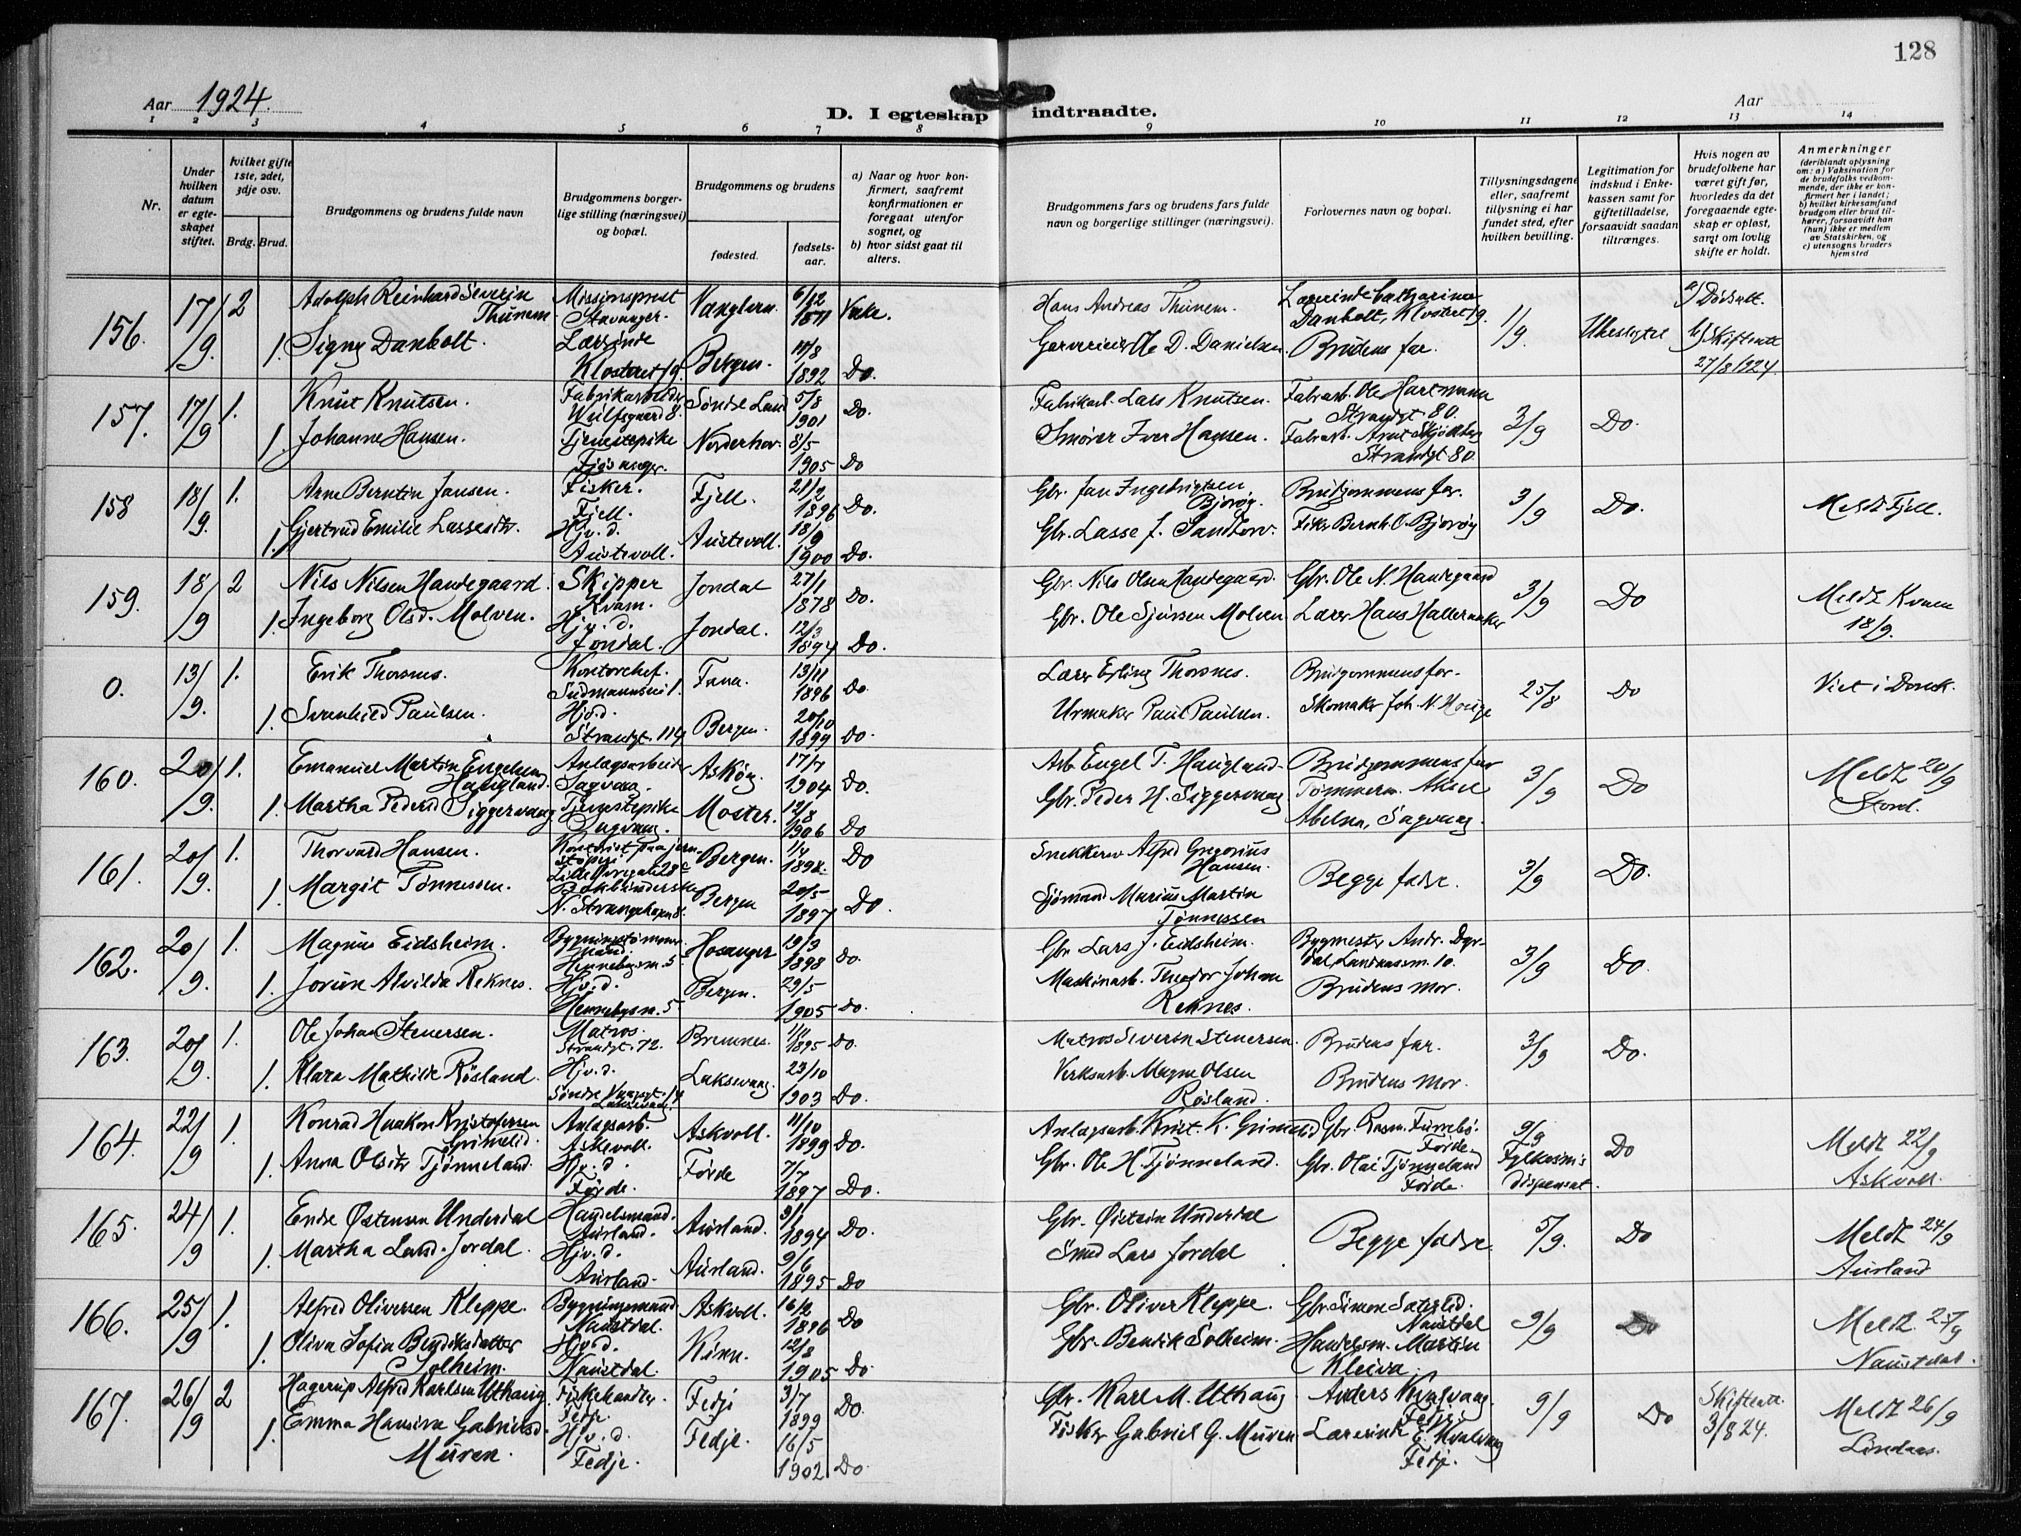 128
Aar 1924.
D. I egteskap indtraadte.
Aar
1 2 3 4 5 6 7 8 9 10 11 12 13 14
Nr.
Under hvilken datum er egteskapet stiftet.
hvilket gifte 1ste, 2det, 3dje osv.
Brdg. Brud.
Brudgommens og brudens fulde navn
Brudgommens borgerlige stilling (næringsvei) og bopæl.
Brudgommens og brudens
fødested.
fødselsaar.
a) Naar og hvor konfirmert, saafremt konfirmationen er foregaat utenfor sognet, og
b) hvor sidst gaat til alters.
Brudgommens fars og brudens fars fulde navn og borgerlige stillinger (næringsvei).
Forlovernes navn og bopæl.
Tillysningsdagene eller, saafremt tillysning ei har fundet sted, efter hvilken bevilling.
Legitimation for indskud i Enkekassen samt for giftetilladelse, forsaavidt saadan tiltrænges.
Hvis nogen av brudefolkene har været gift før, hvorledes da det foregaaende egteskap er opløst, samt om lovlig skifte er holdt.
Anmerkninger
(deriblandt oplysning om: a) Vaksination for de brudefolks vedkommende, der ikke er konfirmert her i landet; b) hvilket kirkesamfund brudgom eller brud tilhører, forsaavidt han (hun) ikke er medlem av Statskirken, og c) utensogns bruders hjemsted
156. 17/9 2 Adolph Reinhard Severin Thunem Missionsprest Stavanger. 6/12 1871 Hans Andreas Thunem. Lærerinde Catharina Danbolt, Klostert 19. 1/9.
1. Signy Danbolt. Lærerinde Klostert 19. Bergen. 1892 Do. Ole D. Danielsen Brudens far. Skifteatt 27/8 1924.
157. 17/9 1. Knut Knutsen. Fabrikarbeider Wulfsgaard 8. Søndre Land 5/8 1901 Do. Fabrikarb. Lars Knutsen. Fabrarb. Ole Hartmann Strandgt 80. 3/9 Do.
1. Johanne Hansen. Tjenestepike Fjøsanger. Norderhov. 8/5 1905 Do Smører Iver Hansen. Strandgt 80
158 18/9. 1. Arne Berntin Jansen. Fisker. Fjell. Fjell. 21/2 1896 Do. Gbr. Jan Ingebrigtsen Bjorøy. Brudgommens far. 3/9 Do. Meldt Fjell.
1. Gjertrud Emilie Lassesdtr. Hjv. d. Austevoll. Austevoll. 18/9 1900 Do. Gbr. Lasse J. Sandtorv. Fisker Bernh. O. Bjorøy
159. 18/9 2 Nils Nilsen Handegaard. Skipper Kvam. Jondal 27/1 1878 Do. Gbr. Nils Olsen Handegaard. Gbr. Ole N. Handegaard 3/9 Do Meldt Kvam 18/9.
1. Ingeborg Olsd. Molven. Hjv. d. Jondal. Jondal. 12/3 1894 Do. Gbr. Ole Sjursen Molven Lærer Hans Halleraaker
0. 13/9. 1. Erik Thorsnes. Kontorchef. Fana. 13/11 1896 Do Lærer Erling Thorsnes. Brudgommens far. 25/8 Do Viet i Domk.
1. Svenhild Paulsen. Hjv.d. Strandgt. 114 Bergen. 20/10 1899 Do. Urmaker Paul Paulsen. Skomaker Joh. N. Hauge
160. 20/9. 1. Emanuel Martin Engelsen Haugland. Anlægsarbeider Sagvaag. Askøy. 17/7 1904 Do. Arb. Engel T. Haugland. Brudgommens far 3/9 Do Meldt 20/9 Stord.
1. Martha Pedersd Siggervaag Tjenestepike Sagvaag. Moster. 1906 Do Gbr. Peder H. Siggervaag Tømmerm. Aksel Abelsen, Sagvaag.
161. 20/9. 1. Thorvard Hansen. Bergen. 1/4 1898. Do Snekker Alfred Gregorius Hansen. Begge fædre. 3/9 Do.
1. Margit Tønnessen. N. Strangehagen 8. Bergen 20/5 1897 Do. Sjømand Marius Martin Tønnessen
162. 20/9. 1. Magnus Eidsheim. Hennebysm. 5. Hosanger 19/3 1898 Do. Gbr. Lars J. Eidsheim. Bygmester Andr. Dyrdal, Landaassm. 10. 3/9 Do.
1. Jorunn Alvilda Reknes. Hjv. d. Hennebysm. 5 Bergen. 29/5 1905 Do. Maskinarb. Theodor Johan Reknes. Brudens mor.
163. 20/9. 1. Ole Johan Steuersen. Matros. Strandgt. 72. Bremnes. 1895 Do. Matros Severin Steuersen. Brudens far. 3/9 Do.
1. Klara Mathilde Røsland. Hjv. d. Laksevaag. 23/10 1903 Do. Verksarb. Magne Olsen Røsland. Brudens mor.
164. 22/9 1. Konrad Haakon Kristofersen Grimelid. Anlægsarb. Askvoll. Askvoll. 11/10 1899 Do. Anlægsarb. Krist. K. Grimelid Gbr. Rasm. Furebø. Førde. 9/9 Fylkesm's dispensat. Do Meldt 22/9 Askvoll.
1. Anna Olsdtr Tjønneland. Hjv. d. Førde. Førde 7/7 1897 Do. Gbr. Ole H. Tjønneland. Gbr. Olai Tjønneland Førde.
165. 24/9 1. Endre Østensen Underdal Handelsmand. Aurland. Aurland. 1894 Do. Gbr. Østein Underdal Begge fædre. 5/9. Do Meldt 24/9 Aurland
1. Martha Lund. Jordal. Hjv. d. Aurland. Aurland. 9/6 1895 Do Smed Lars Jordal
166. 25/9 1. Alfred Oliversen Kleppe. Bygningsmand Naustdal. Askvoll. 16/2 1896 Do Gbr. Oliver Kleppe. Gbr. Simon Sæterlid. Naustdal 9/9 Do Meldt 25/9 Naustdal.
1. Oliva Sofia Bendiksdatter Solheim. Hjv.d. Naustdal. Kinn. 12/8 1905 Do Gbr. Bendik Solheim. Handelsm. Martin Kleiva.
167. 26/9 2 Hagerup Alfred Karlsen Uthaug Fiskehandler. Fedje. Fedje 3/7 1899 Do. Gbr. Karl M. Uthaug Anders Kvalvaag. Fedje. 9/9 Do Skifteatt. 3/8 24. Meldt 26/9 Lindaas.
1. Emma Hansine Gabrielsd. Muren. Hjv. d. Fedje. Fedje. 16/5 1902 Do. Fisker Gabriel G. Muren Lærerinde E. Kvalvaag Fedje.